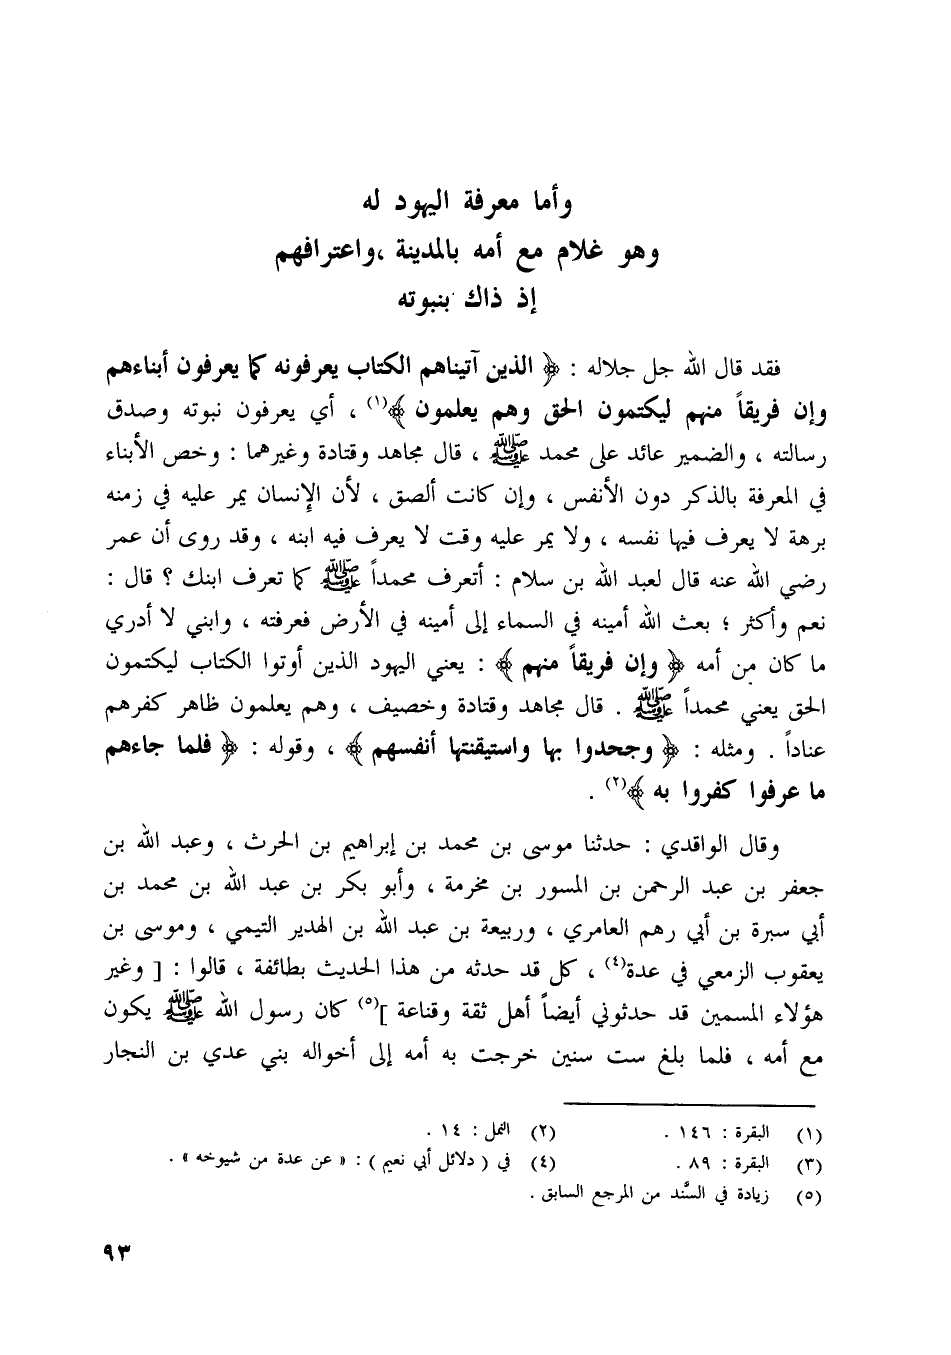 وأما معرفة اليهود له
وهو غلام مع أمه بالمدينة ،واعترافهم
إذ ذاك بنبوته
فقد قال الله جل جلاله : ﴿ الذين آتيناهم الكتاب يعرفونه كما يعرفون أبناءهم
وإن فريقاً منهم ليكتمون الحق وهم يعلمون ﴾(١) ، أي يعرفون نبوته وصدق
رسالته ، والضمير عائد على محمد ﷺ ، قال مجاهد وقتادة وغيرهما : وخص الأبناء
في المعرفة بالذكر دون الأنفس ، وإن كانت ألصق ، لأن الإنسان يمر عليه في زمنه
برهة لا يعرف فيها نفسه ، ولا يمر عليه وقت لا يعرف فيه ابنه ، وقد روى أن عمر
رضي الله عنه قال لعبد الله بن سلام : أتعرف محمداً ﷺ كما تعرف ابنك ؟ قال :
نعم وأكثر ؛ بعث الله أمينه في السماء إلى أمينه في الأرض فعرفته ، وابني لا أدري
ما كان من أمه ﴿ وإن فريقاً منهم ﴾ : يعني اليهود الذين أوتوا الكتاب ليكتمون
الحق يعني محمداً ﷺ . قال مجاهد وقتادة وخصيف ، وهم يعلمون ظاهر كفرهم
عناداً . ومثله : ﴿ وجحدوا بها واستيقنتها أنفسهم ﴾ ، وقوله : ﴿ فلما جاءهم
ما عرفوا كفروا به ﴾(٢) .
وقال الواقدي : حدثنا موسى بن محمد بن إبراهيم بن الحرث ، وعبد الله بن
جعفر بن عبد الرحمن بن المسور بن مخرمة ، وأبو بكر بن عبد الله بن محمد بن
أبي سبرة بن أبي رهم العامري ، وربيعة بن عبد الله بن الهدير التيمي ، وموسى بن
يعقوب الزمعي في عدة(٤) ، كل قد حدثه من هذا الحديث بطائفة ، قالوا : [ وغير
هؤلاء المسمين قد حدثوني أيضاً أهل ثقة وقناعة ](٥) كان رسول الله ﷺ يكون
مع أمه ، فلما بلغ ست سنين خرجت به أمه إلى أخواله بني عدي بن النجار
(١) البقرة : ١٤٦ . (٢) النمل : ١٤ .
(٣) البقرة : ٨٩ . (٤) في ( دلائل أبي نعيم ) : « عن عدة من شيوخه » .
(٥) زيادة في السَّند من المرجع السابق .
٩٣